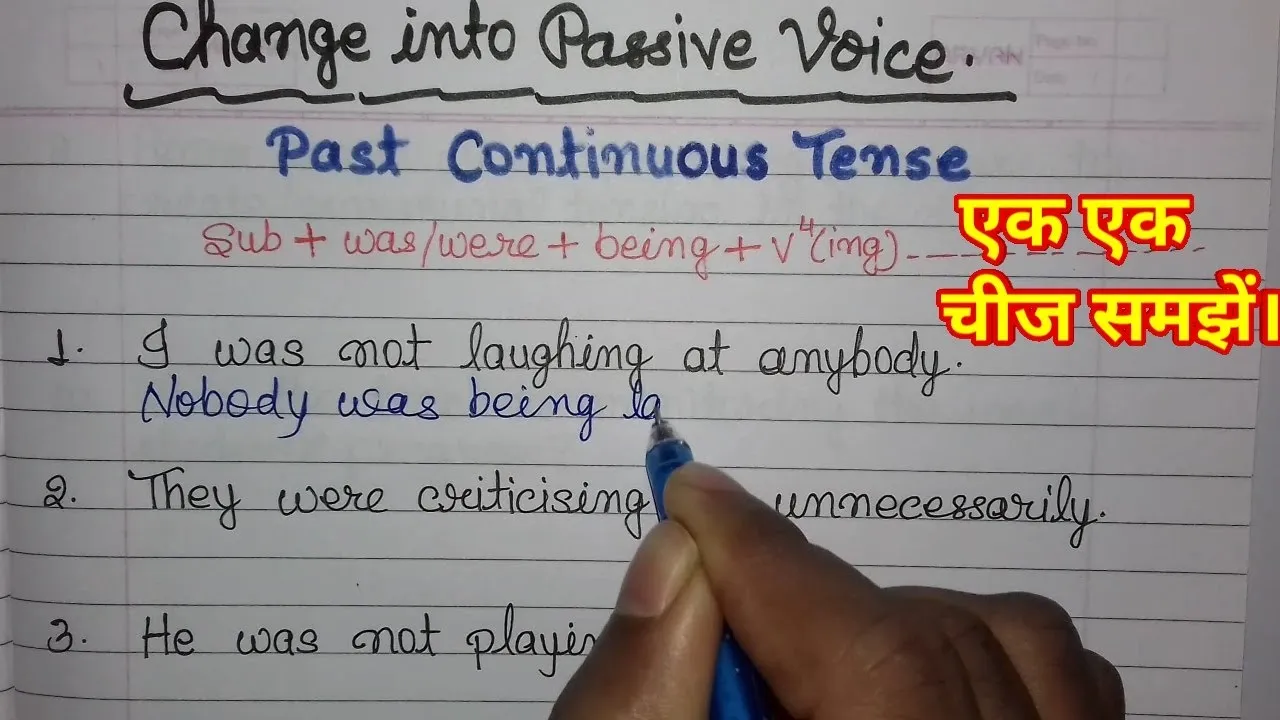 Change into Passive Voice.
Past Continuous Tense
Sub + was/were + being + V⁴(ing)
एक एक
चीज समझें।
1. I was not laughing at anybody.
Nobody was being la
2. They were criticising unnecessarily.
3. He was not